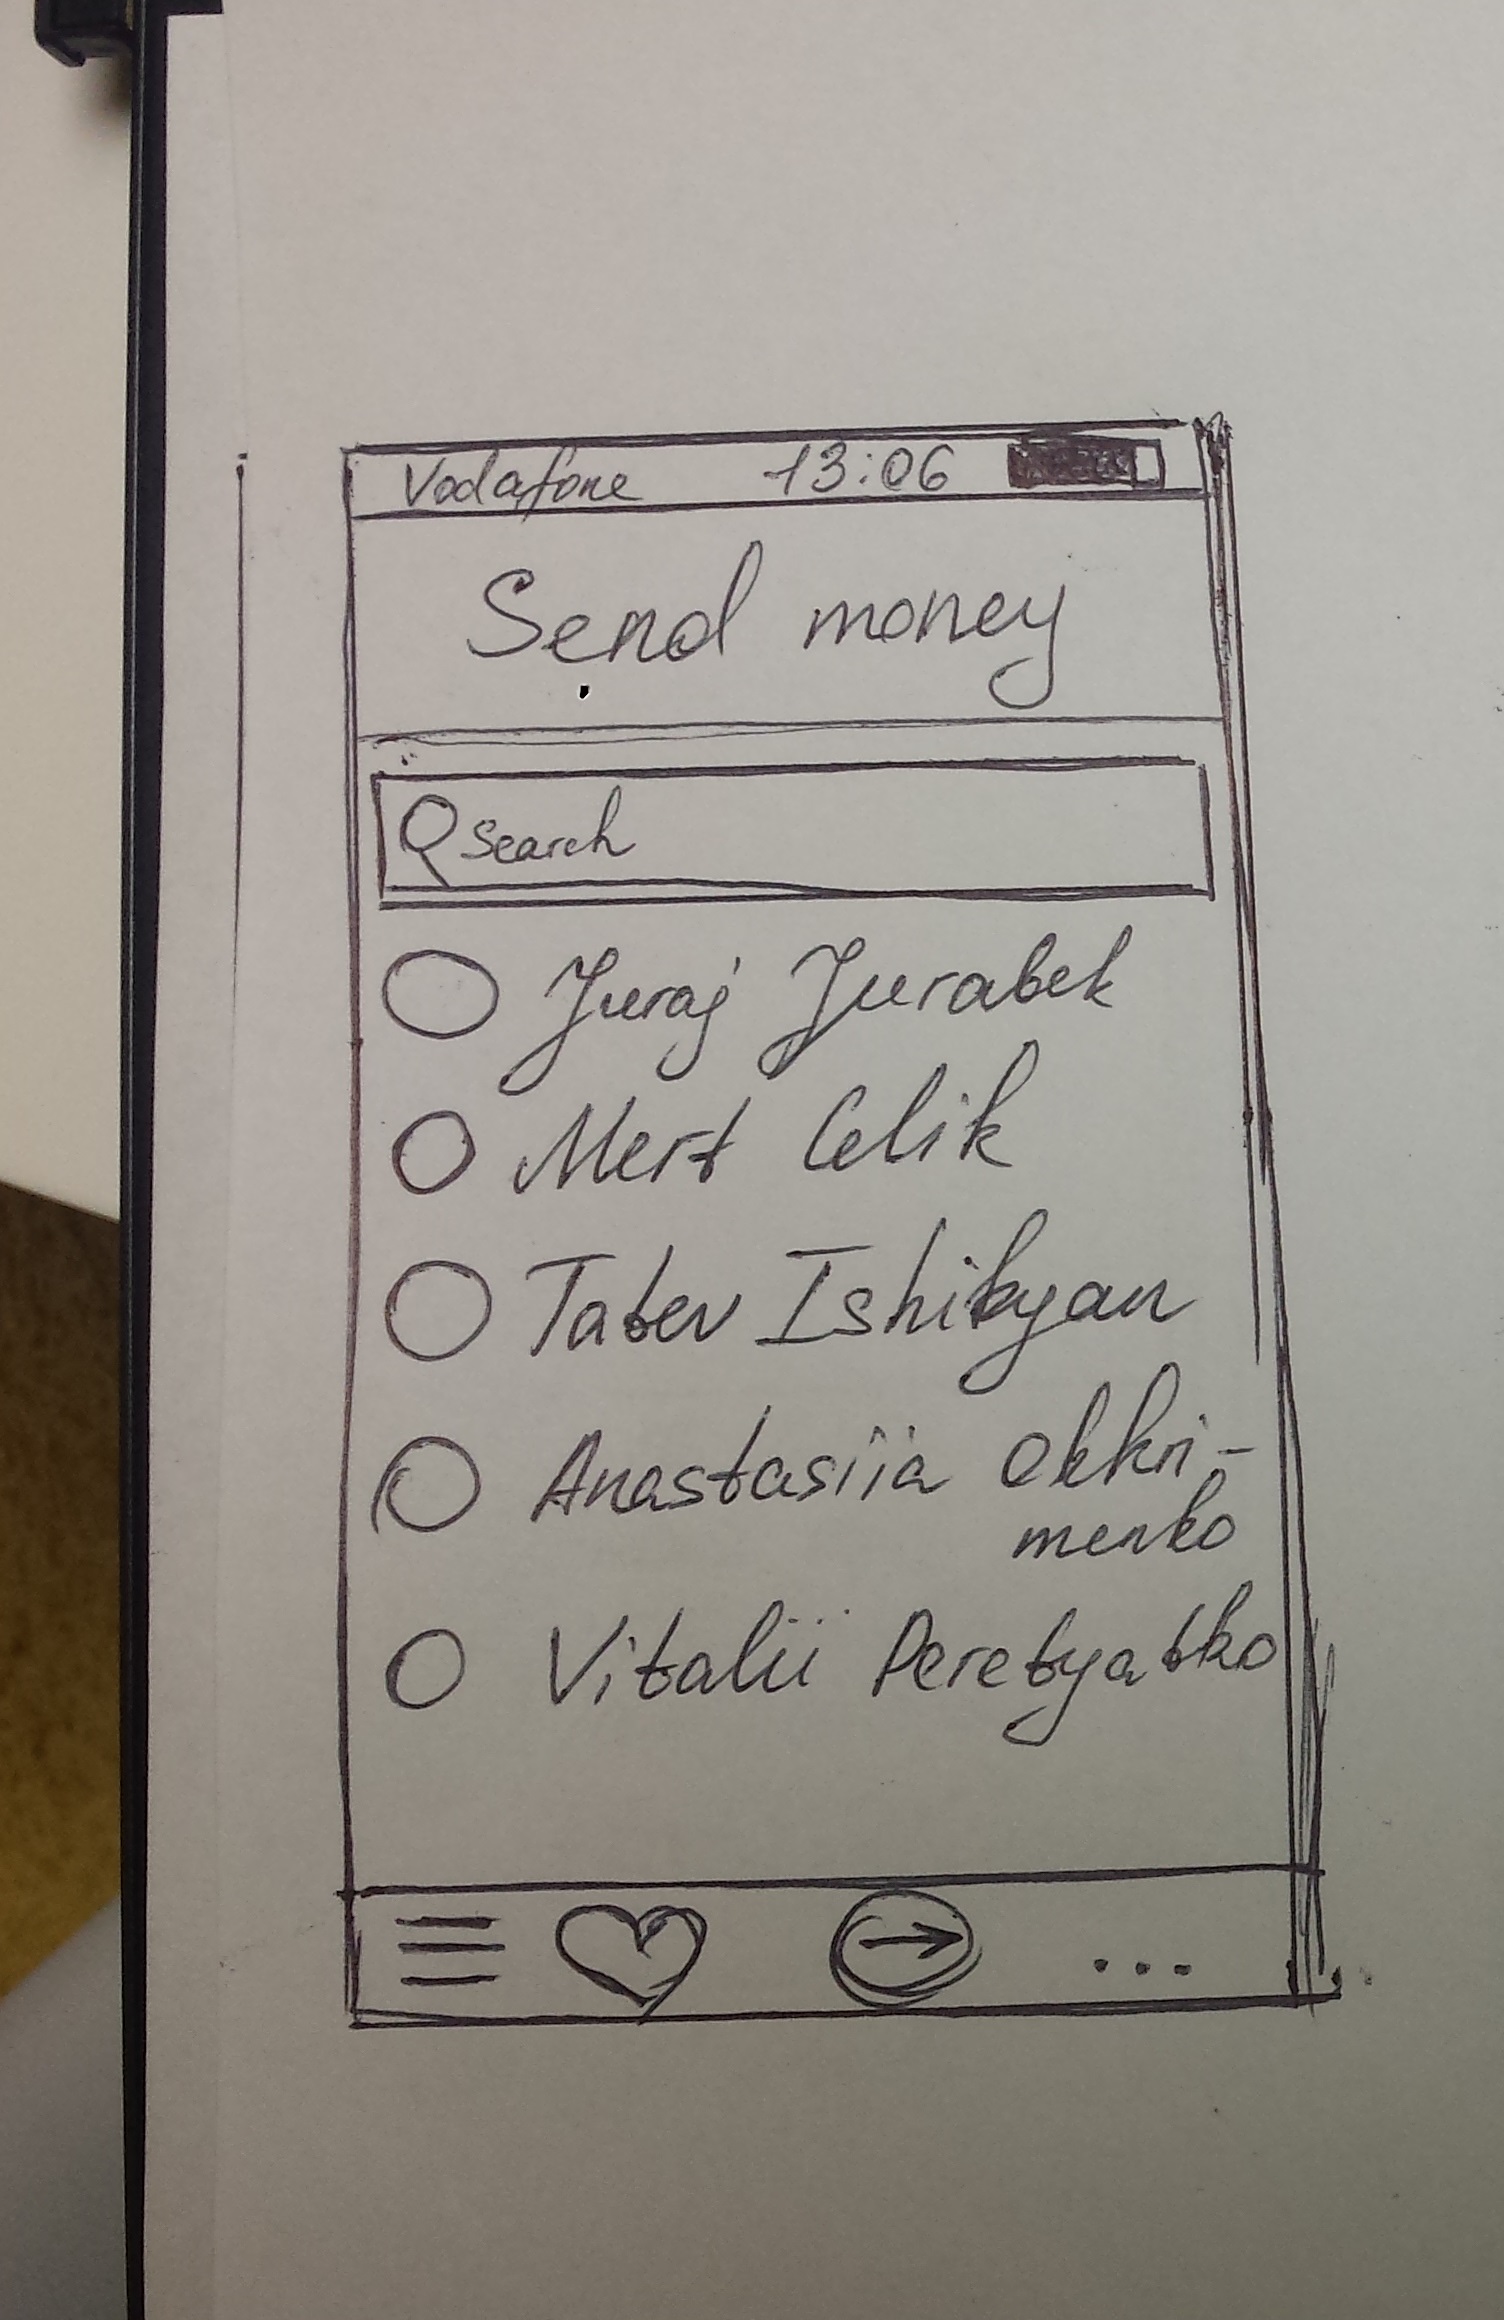 Vodafone 13:06
Send money
Search
Juraj Jurabek
Mert Celik
Tatev Ishikyan
Anastasiia Okhri-
menko
Vitalii Peretyatko
...